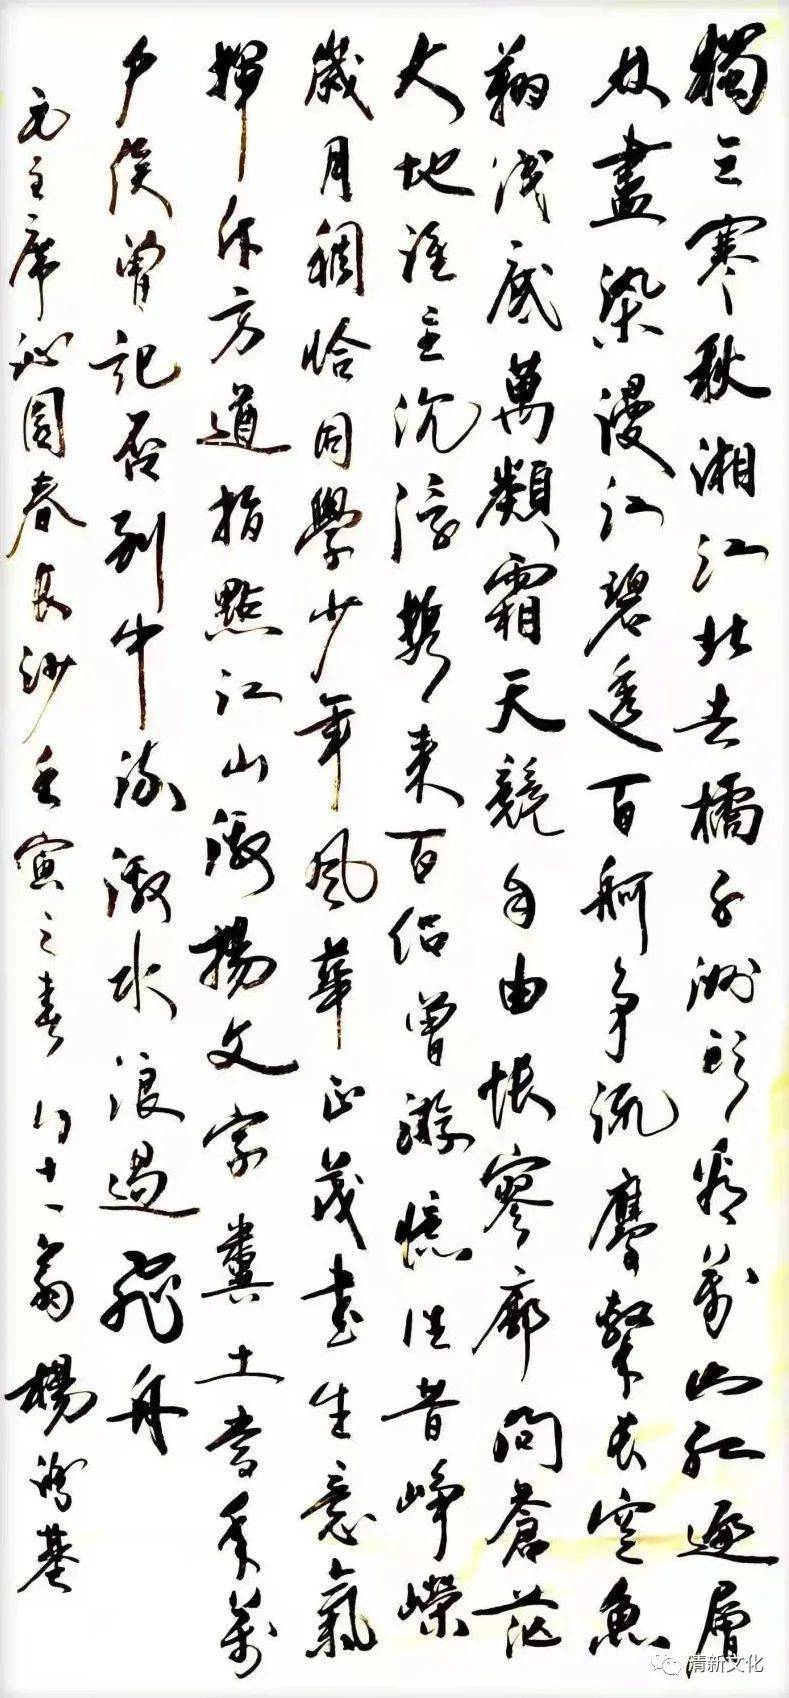 獨立寒秋湘江北去橘子洲头看萬山紅遍層
林盡染漫江碧透百舸争流鷹擊长空魚
翔浅底萬類霜天競自由悵寥廓問蒼茫
大地誰主沉浮攜來百侣曾游憶往昔崢嶸
歲月稠恰同學少年风華正茂書生意氣
揮斥方遒指點江山激揚文字糞土當年萬
户侯曾記否到中流激水浪遏飛舟
毛主席沁園春長沙壬寅之春十一翁楊基
清新文化